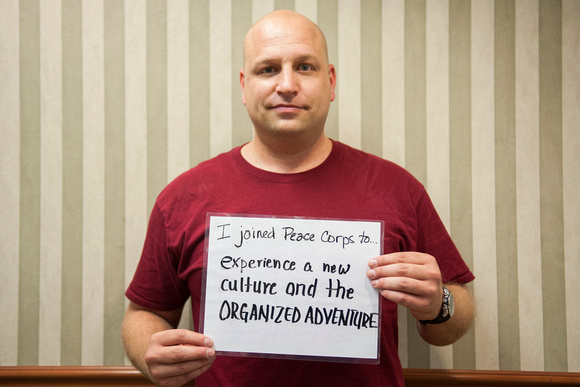 I joined Peace Corps to...
experience a new
culture and the
ORGANIZED ADVENTURE